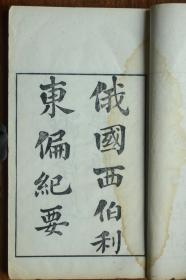 俄國西伯利
東偏紀要